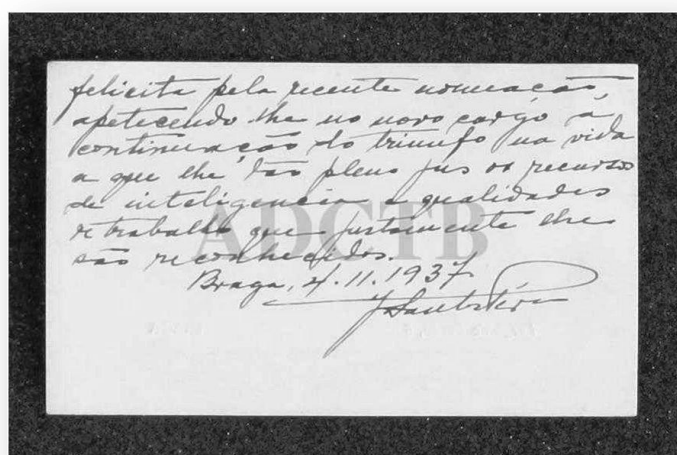 felicita pela recente nomeação,
apetecendo lhe no novo cargo a
continuação do triunfo na vida
a que lhe dão pleno jus os recursos
de inteligencia e qualidades
de trabalho que justamente lhe
são reconhecidos.
ADCTB
Braga, 4.11.1937